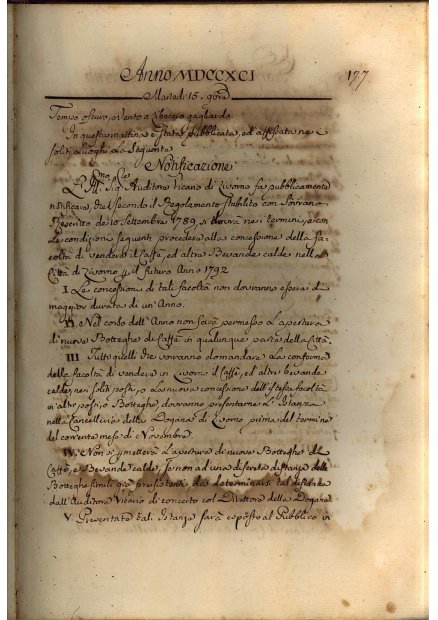 Anno MDCCXCI 177
Martedi 15. 9bre
Tempo oscuro, e Vento a libeccio gagliardo.
In questa mattina è stata pubblicata, ed affissata ne i
soliti Luoghi la seguente
Notificazione
L' Ill.mo Sig. Auditore Vicario di Livorno fa pubblicamente
notificare, che secondo il Regolamento stabilito con Sovrano
Rescritto de 10 Settembre 1789, si dovrà ne i termini, e con
le condizioni seguenti procedere alla concessione della fa-
coltà di vendere il Caffè, ed altre Bevande calde nella
Città di Livorno p il futuro Anno 1792
I. Le concessioni di tali facoltà non dovranno essere di
maggior durata di un' Anno.
II. Nel corso dell' Anno non sarà permessa l'apertura
di nuove Botteghe di Caffè in qualunque parte della Città.
III. Tutti quelli che vorranno domandare la conferma
della facoltà di vendere in Livorno il Caffè, ed altre bevande
calde, nei soliti posti, o la nuova concessione dell' istessa facoltà
in altri posti, o Botteghe dovranno presentarne l'Istanza
nella Cancelleria della Dogana di Livorno prima del termine
del corrente mese di Novembre.
IV. Non si permetterà l'apertura di nuove Botteghe di
Caffè, e Bevande calde, se non ad una discreta distanza dalle
Botteghe simili già preesistenti, da determinarsi tal distanza
dall' Auditore Vicario di concerto col Direttore della Dogana
V. Presentate tali Istanze sarà esposto al Pubblico in